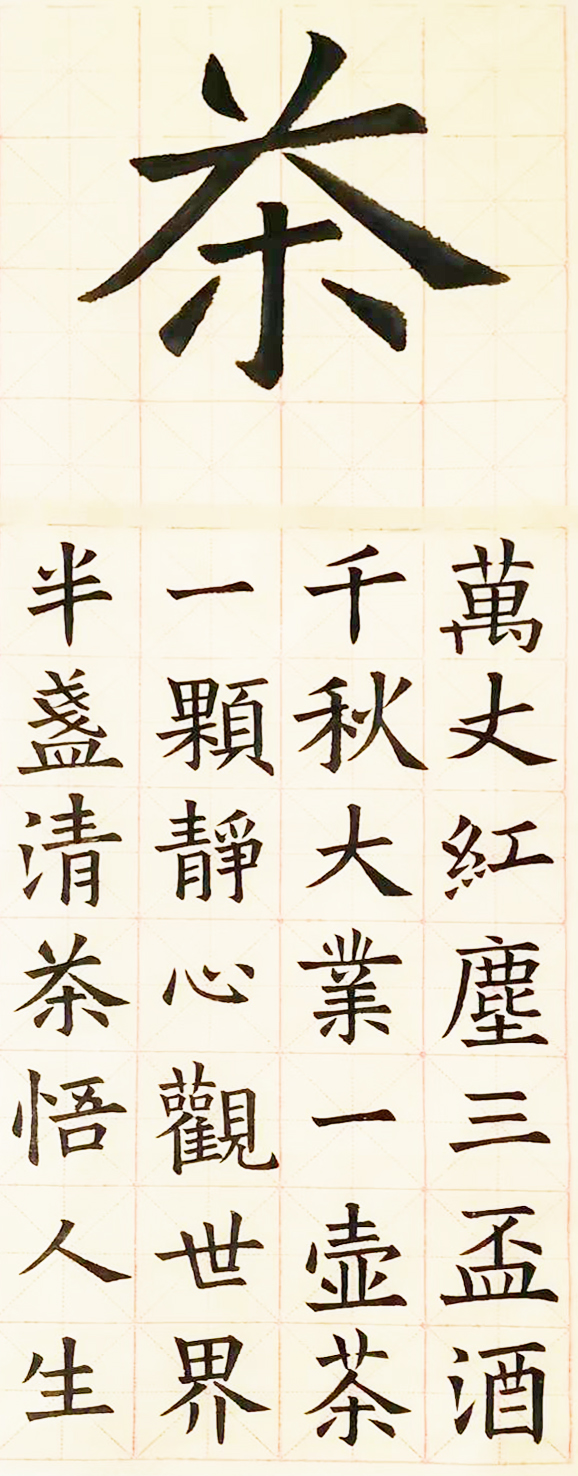 茶
萬丈紅塵三盃酒
千秋大業一壺茶
一顆靜心觀世界
半盞清茶悟人生